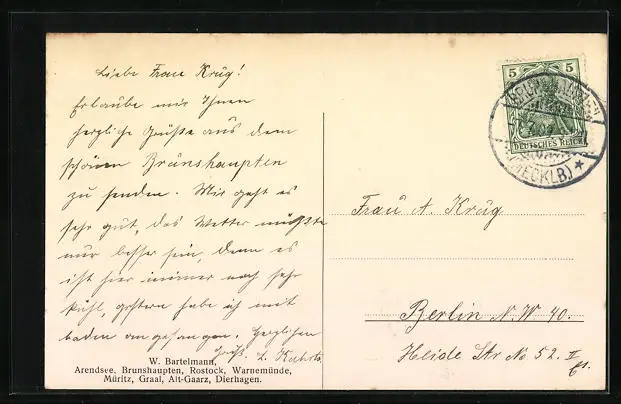 Liebe Frau Krüg!
Erlaube mir Ihnen
herzliche Grüße aus dem
schönen Brunshaupten
zu senden. Mir geht es
sehr gut, das Wetter müßte
nur besser sein, denn es
ist hier immer noch sehr
kühl, gestern habe ich mit
baden angefangen. Herzlichen
Gruß.
W. Bartelmann,
Arendsee, Brunshaupten, Rostock, Warnemünde,
Müritz, Graal, Alt-Gaarz, Dierhagen.
5 5
DEUTSCHES REICH
(MECKLB)
Frau A. Krüg
Berlin N. W 40.
Heide Str No 52. II